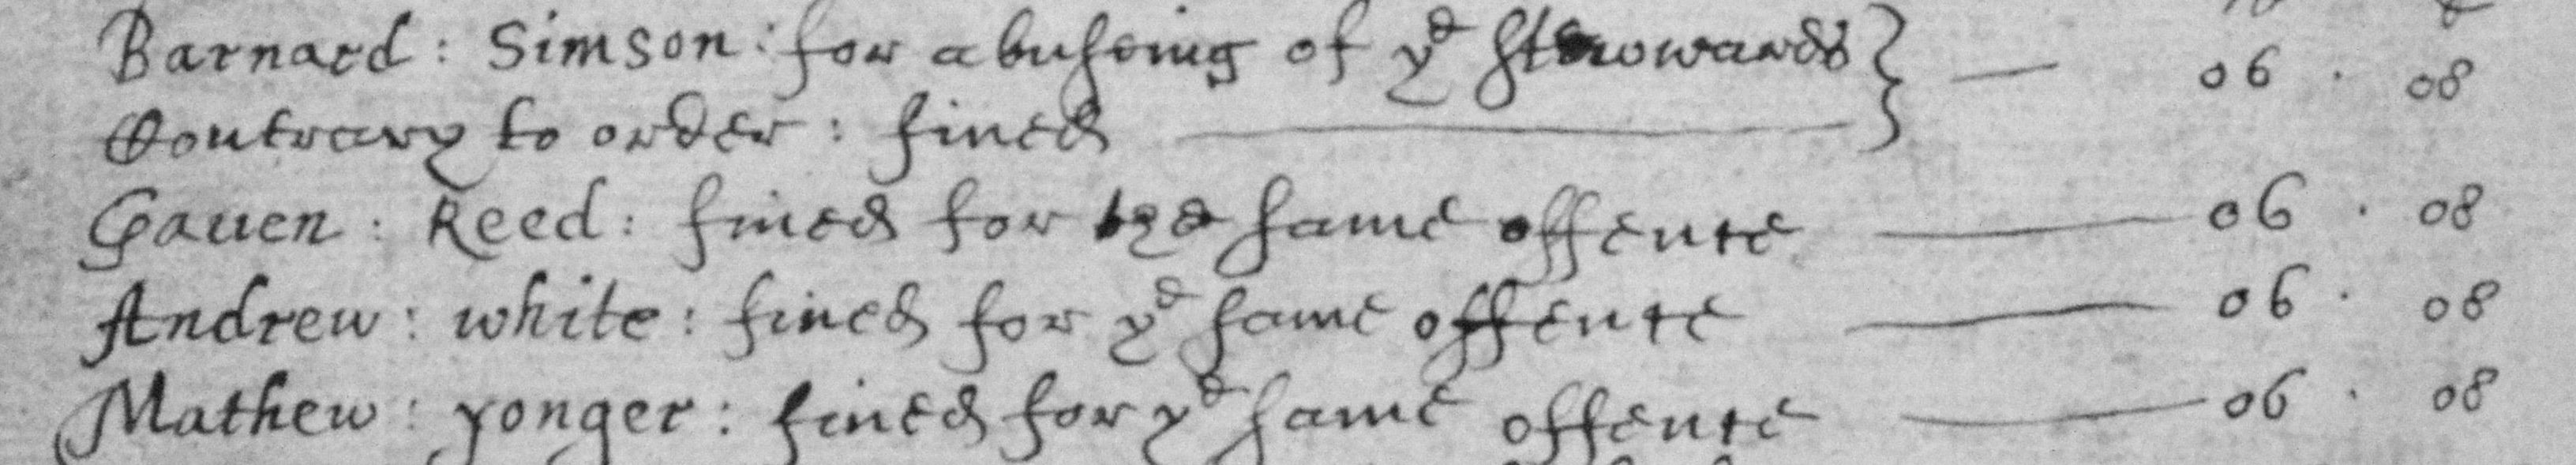 Barnard : Simson : for abuseing of ye Stewwards } — 06 . 08
Contrary to order : fined
Gauen : Reed : fined for the same offence — 06 . 08
Andrew : white : fined for ye same offence — 06 . 08
Mathew : yonger : fined for ye same offence — 06 . 08